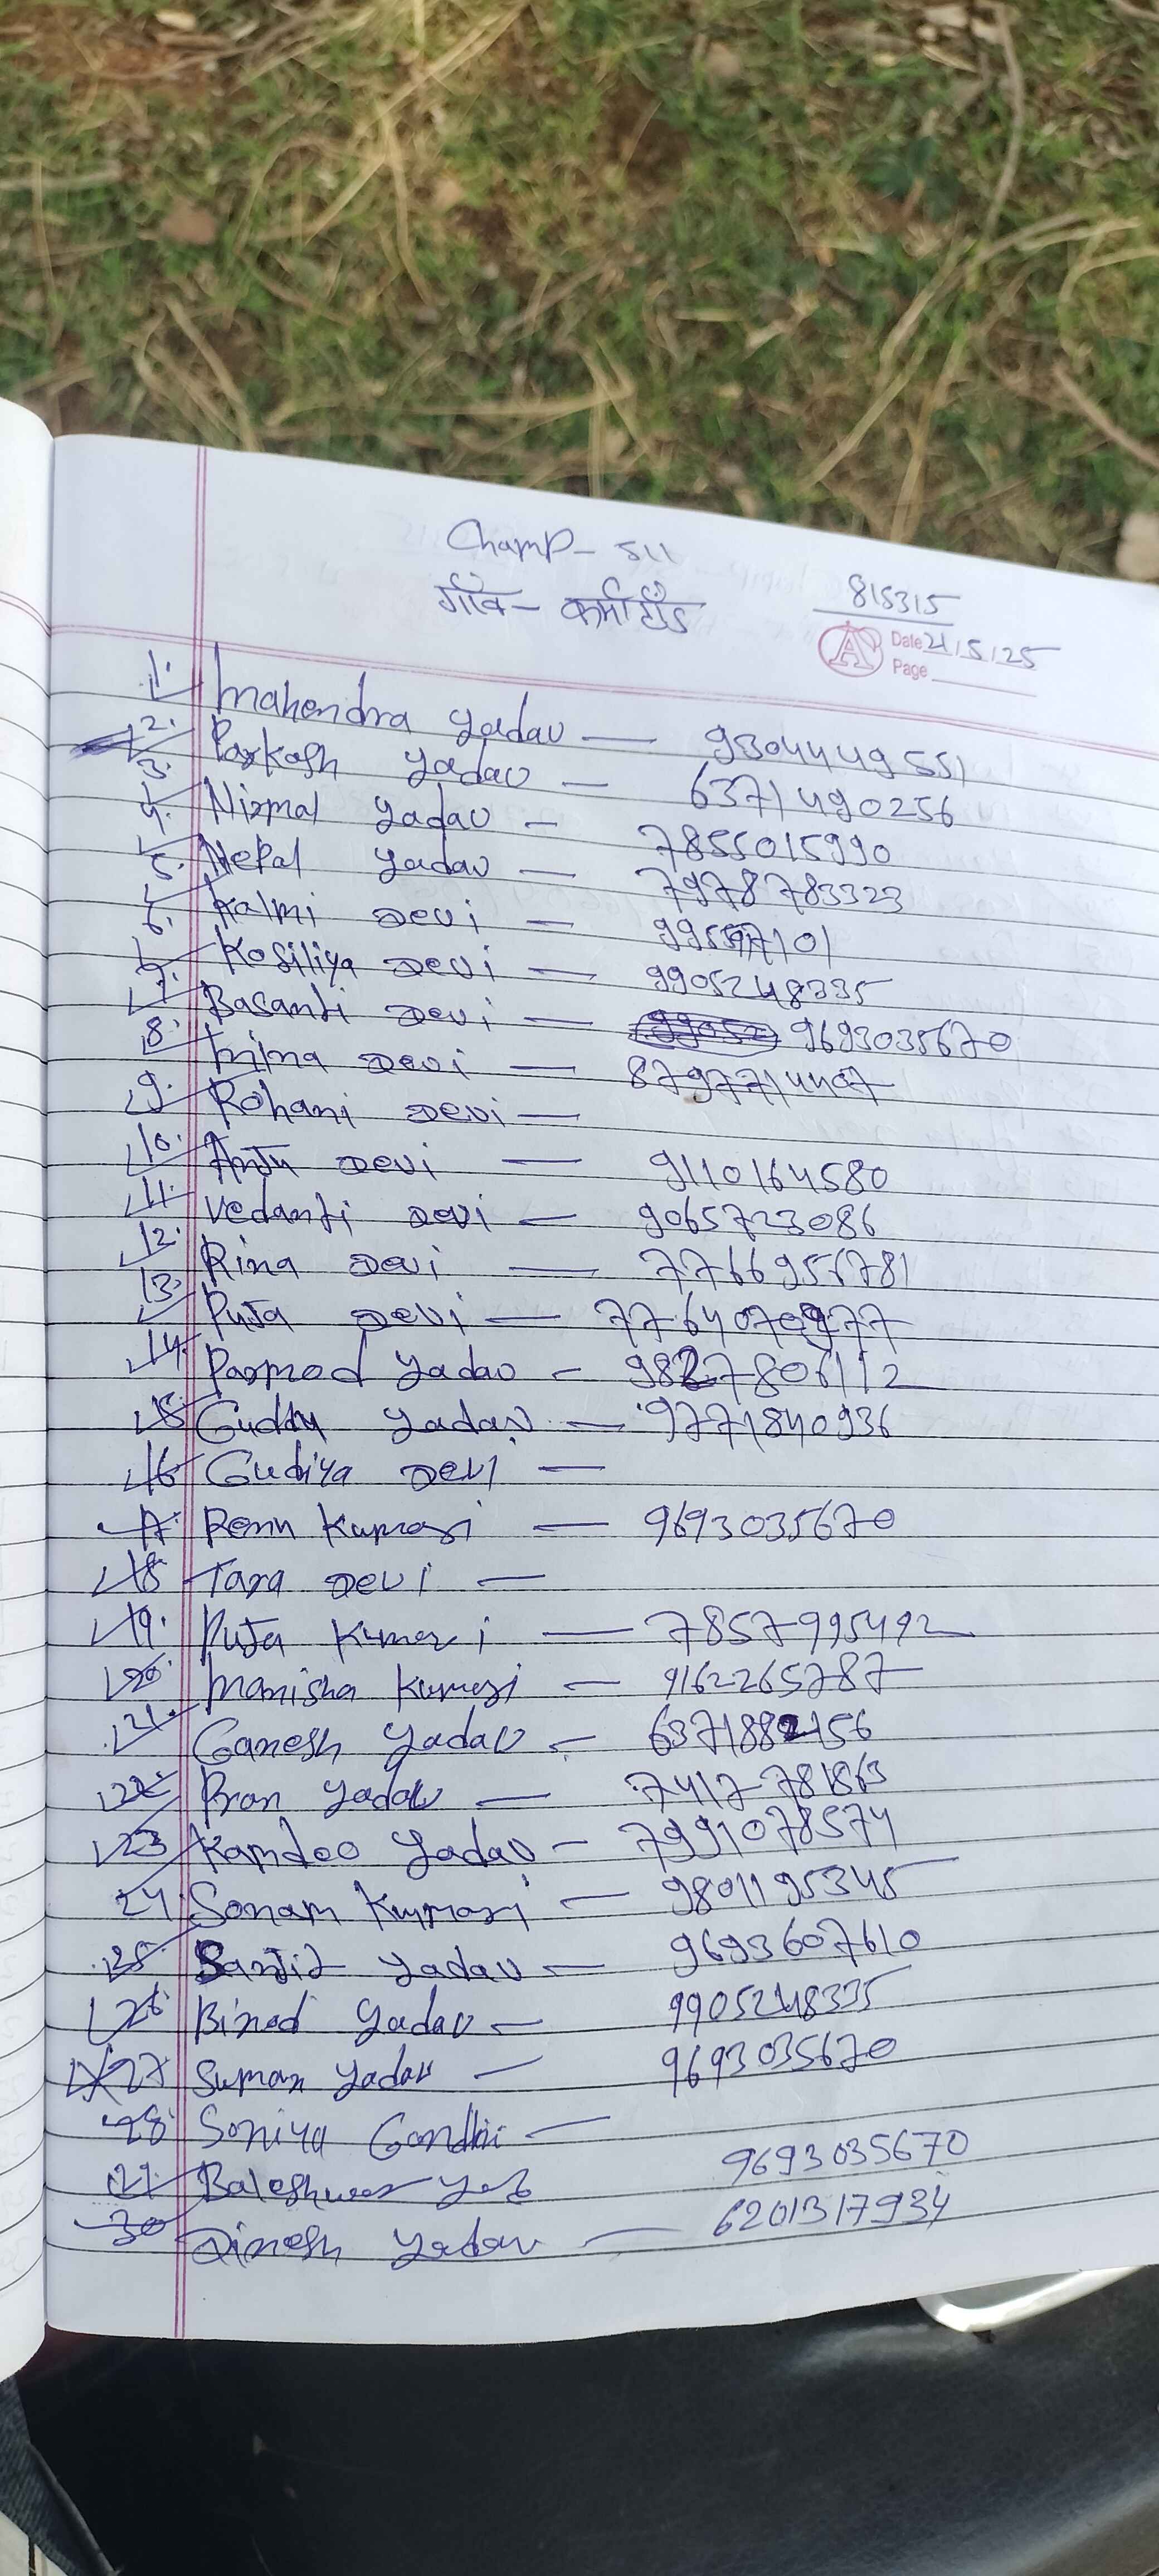 Champ - 511
गाँव - कर्माटाँड
815315
Date 21/5/25
Page
1. Mahendra Yadav — 9304449551
2. Parkash Yadav — 6371490256
3. Nirmal Yadav — 7855015990
4. Nepal Yadav — 7978783323
5. Kalmi Devi —
6. Kosiliya Devi — 9905248335
7. Basanti Devi — 9693035670
8. Mina Devi — 8797714497
9. Rohani Devi —
10. Anju Devi — 9110164580
11. Vedanti Devi — 9065723086
12. Rina Devi — 7766956781
13. Puja Devi —
14. Parmod Yadav — 9827806112
15. Guddu Yadav — 9771840936
16. Gudiya Devi —
17. Renu Kumari — 9693035670
18. Tara Devi —
19. Puja Kumari — 7857995492
20. Manisha Kumari — 9162265787
21. Ganesh Yadav —
22. Pran Yadav — 7417781863
23 Kamdeo Yadav — 7991078574
24. Sonam Kumari — 9801195345
25. Sanjit Yadav — 9693607610
26. Binod Yadav — 9905248335
27 Suman Yadav — 9693035670
28. Soniya Gandhi —
29. Baleshwar 9693035670
30 Dinesh Yadav — 6201317934